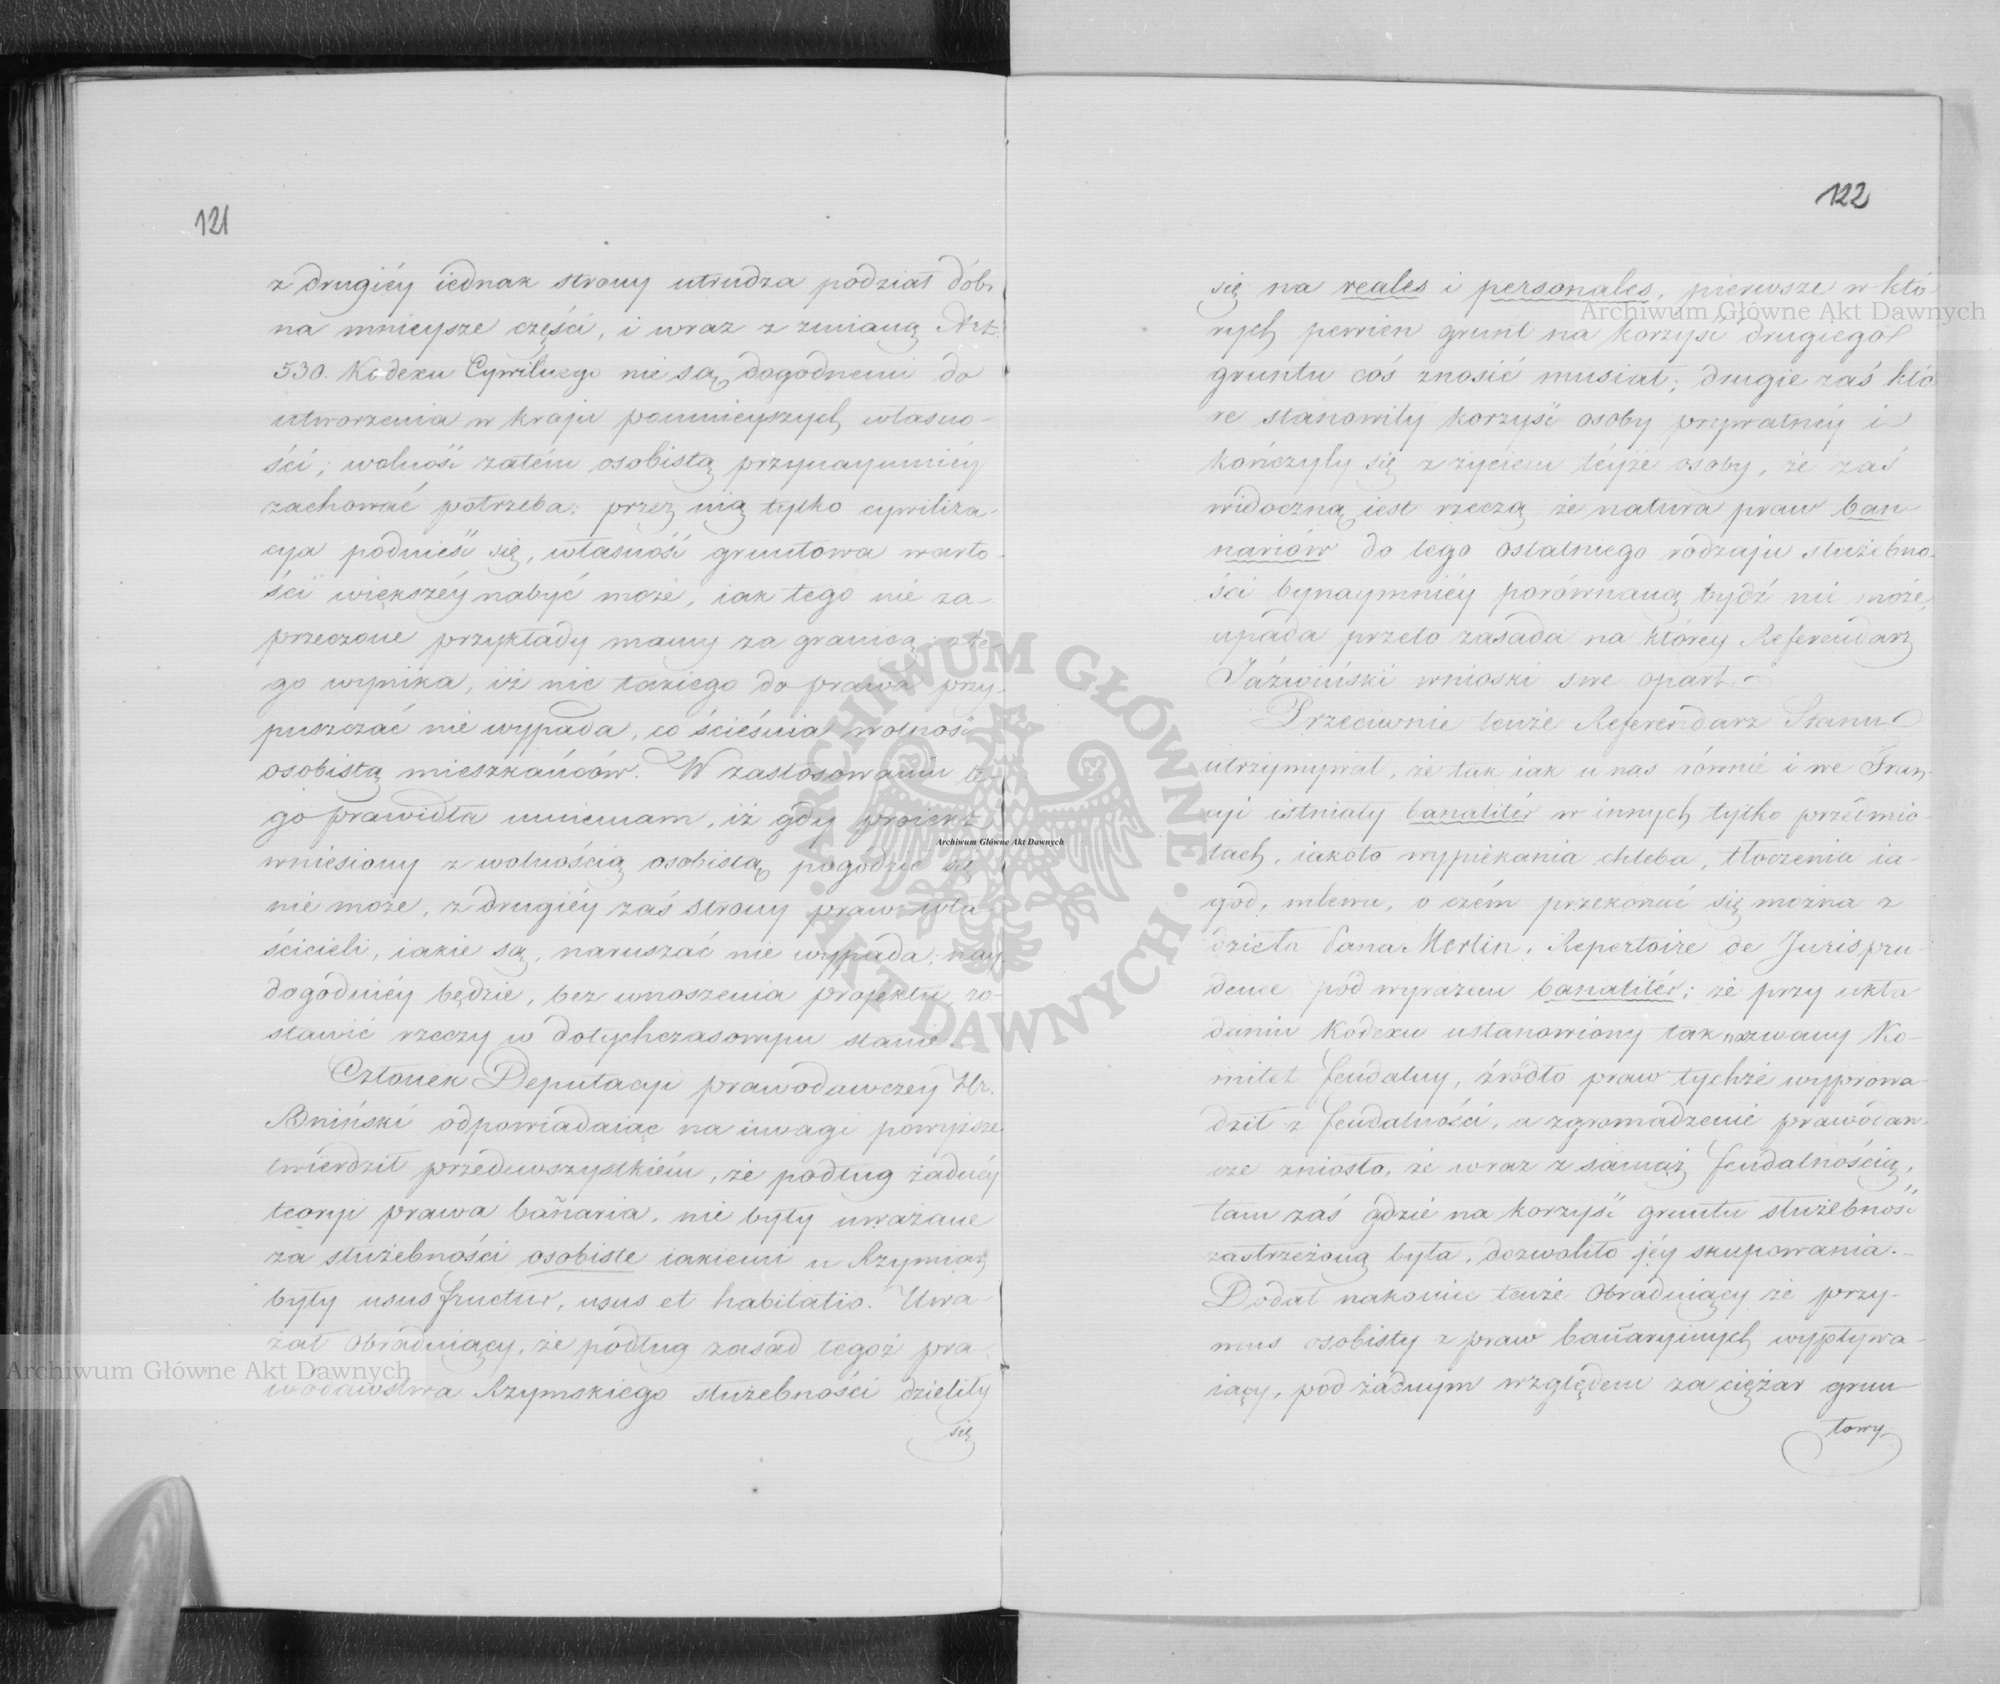 121
z drugiéy iednak strony utrudza podział dóbr
na mnieysze części, i wraz z zmianą Art.
530. Kodexu Cywilnego nie są dogodnemi do
utworzenia w kraju pomnieyszych własno-
ści; wolność zatém osobistą przynaymniéy
zachować potrzeba; przez nią tylko cywiliza-
cya podnieść się, własność gruntowa warto-
ści większéy nabyć może, iak tego nie za-
przeczone przykłady mamy za granicą; z te-
go wynika, iż nic takiego do prawa przy-
puszczać nie wypada, co ścieśnia wolność
osobistą mieszkańców. W zastosowaniu te-
go prawidła mniemam, iż gdy proiekt
wniesiony z wolnością osobistą pogodzić się
nie może, z drugiéy zaś strony praw wła-
ścicieli, iakie są, naruszać nie wypada; nay
dogodniéy będzie, bez wnoszenia projektu, zo-
stawić rzeczy w dotychczasowym stanie.
Członek Deputacyi prawodawczey Hr.
Bniński odpowiadaiąc na uwagi powyższe
twierdził przedewszystkiém, że podług żadnéy
teoryi prawa banaria, nie były uważane
za służebności osobiste iakiemi u Rzymian
były usus fructus, usus et habitatio. Uwa-
żał Obraduiący, że podług zasad tegoż pra-
wodawstwa Rzymskiego służebności dzieliły
się
122
się na reales i personales, pierwsze w któ
rych pewien grunt na korzyść drugiego
gruntu coś znosić musiał; drugie zaś któ
re stanowiły korzyść osoby prywatnéy i
kończyły się z życiem téyże osoby, że zaś
widoczną iest rzeczą że natura praw ban
nariów do tego ostatniego rodzaju służebno-
ści bynaymniéy porównaną bydź nie może,
upada przeto zasada na którey Referendarz
Jaźwiński wnioski swe oparł.
Przeciwnie tenże Referendarz Stanu
utrzymywał, że tak iak u nas równie i we Fran-
cyi istniały banalités w innych tylko przedmio-
tach, iakoto wypiekania chleba, tłoczenia ia-
gód, mlewa, o czém przekonać się można z
dzieła Pana Merlin, Repertoire de Jurispru-
dence pod wyrazem banalités; że przy ukła
daniu Kodexu ustanowiony tak nazwany Ko-
mitet feudalny, źródło praw tychże wyprowa-
dził z feudalności, a zgromadzenie prawodaw-
cze zniosło, że wraz z samąż feudalnością,
tam zaś gdzie na korzyść gruntu służebność
zastrzeżoną była, dozwoliło jéy skupowania.
Dodał nakoniec tenże Obraduiący że przy-
mus osobisty z praw banaryinych wypływa-
iący, pod żadnym względem za ciężar grun-
towy
Archiwum Główne Akt Dawnych
Archiwum Główne Akt Dawnych
Archiwum Główne Akt Dawnych
ARCHIWUM GŁÓWNE AKT DAWNYCH